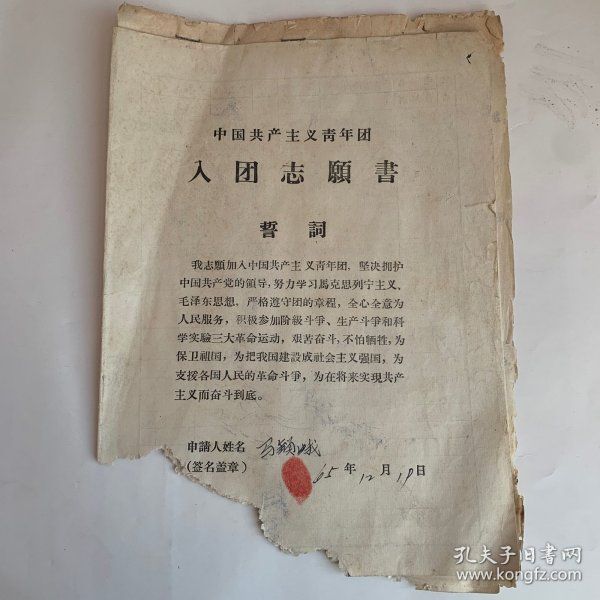 中国共产主义靑年团
入团志願書
誓詞
我志願加入中国共产主义靑年团，坚决拥护
中国共产党的領导，努力学习馬克思列宁主义、
毛泽东思想，严格遵守团的章程，全心全意为
人民服务，积极参加阶級斗爭、生产斗爭和科
学实驗三大革命运动，艰苦奋斗，不怕牺牲，为
保卫祖国，为把我国建設成社会主义强国，为
支援各国人民的革命斗爭，为在将来实現共产
主义而奋斗到底。
申請人姓名
(签名盖章)
65年12月19日
孔夫子旧书网
www.kongfz.com